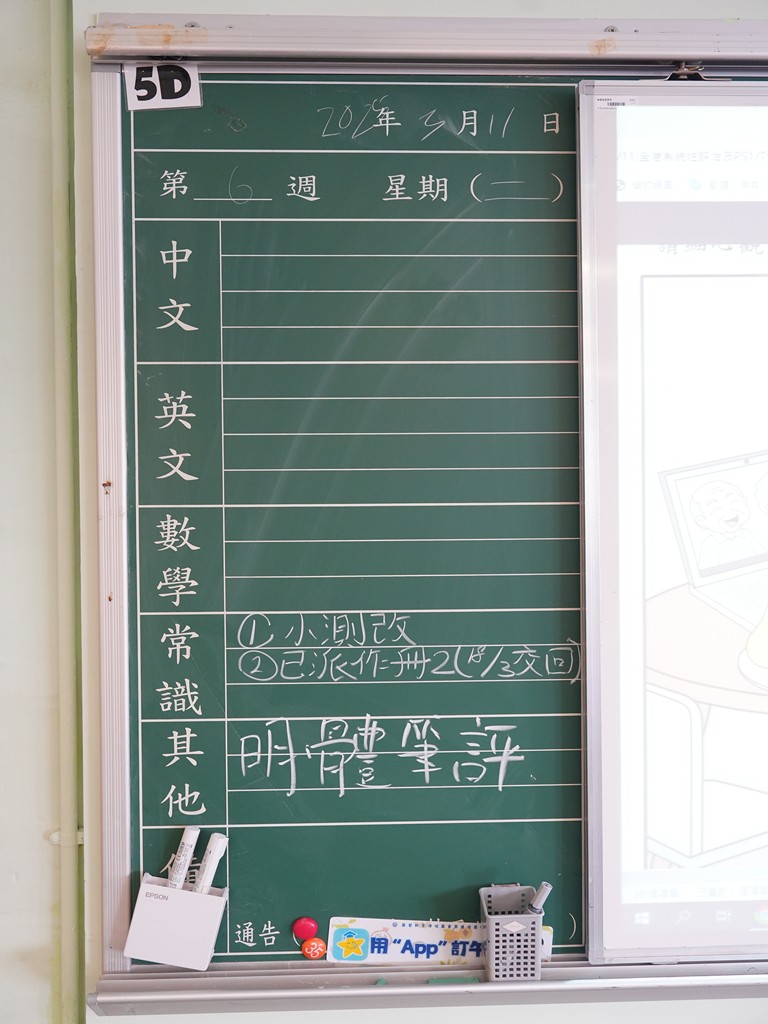 5D
2025年 3月11日
第 6 週 星期(二)
中文
英文
數學
常識
①小測改
②已派作冊2(18/3交回)
其他
明體筆評
EPSON
通告
35
用“App”訂午